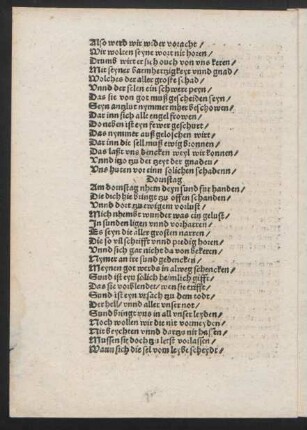 Also werd wir wider voracht/
Wir wolten seyne wort nit horen/
Drumb wirt er sich ouch von vns keren/
Mit seyner barmhertzigkeyt vnnd gnad/
Wolches der aller groste schad/
Vnnd der selen ein schwere peyn/
Das sie von got muß gescheiden seyn/
Seyn anglut nymmer mher beschowen/
Dar inn sich alle engel frowen/
Doneben ist eyn fewer geschurt/
Das nymmer außgeloschen wirt/
Dar inn die sell muß ewig bronnen/
Das laßt vns dencken weyl wir konnen/
Vnnd itzo zu der zeyt der gnaden/
Vns huten vor eine solichen schadenn/
Dornstag
Am dornstag nhem deyn sund fur handen/
Die dich hie bringt zu offen schanden/
Vnnd dort zu ewigem vorlust/
Mich nhembt wunder was ein gelust/
In sunden ligen vnnd vorharren/
Es seyn die aller grosten narren/
Die so vil schrifft vnnd predig horen/
Vnnd sich gar nicht da von bekeren/
Nymer an ire sund gedencken/
Meynen got werds in alweg schencken/
Sund ist eyn solich heimlich gifft/
Das sie vorblendet/ wen sie trifft/
Sund ist eyn vrsach zu dem todt/
Der hell/ vnnd aller vnser not/
Sund bringt vns in all vnser leyden/
Noch wollen wir die nit vormeyden/
Nit beychten vnnd dartzu nit hassen/
Mussen sie doch zu letst vorlassen/
Wann sich die sel vom leybe scheydt/